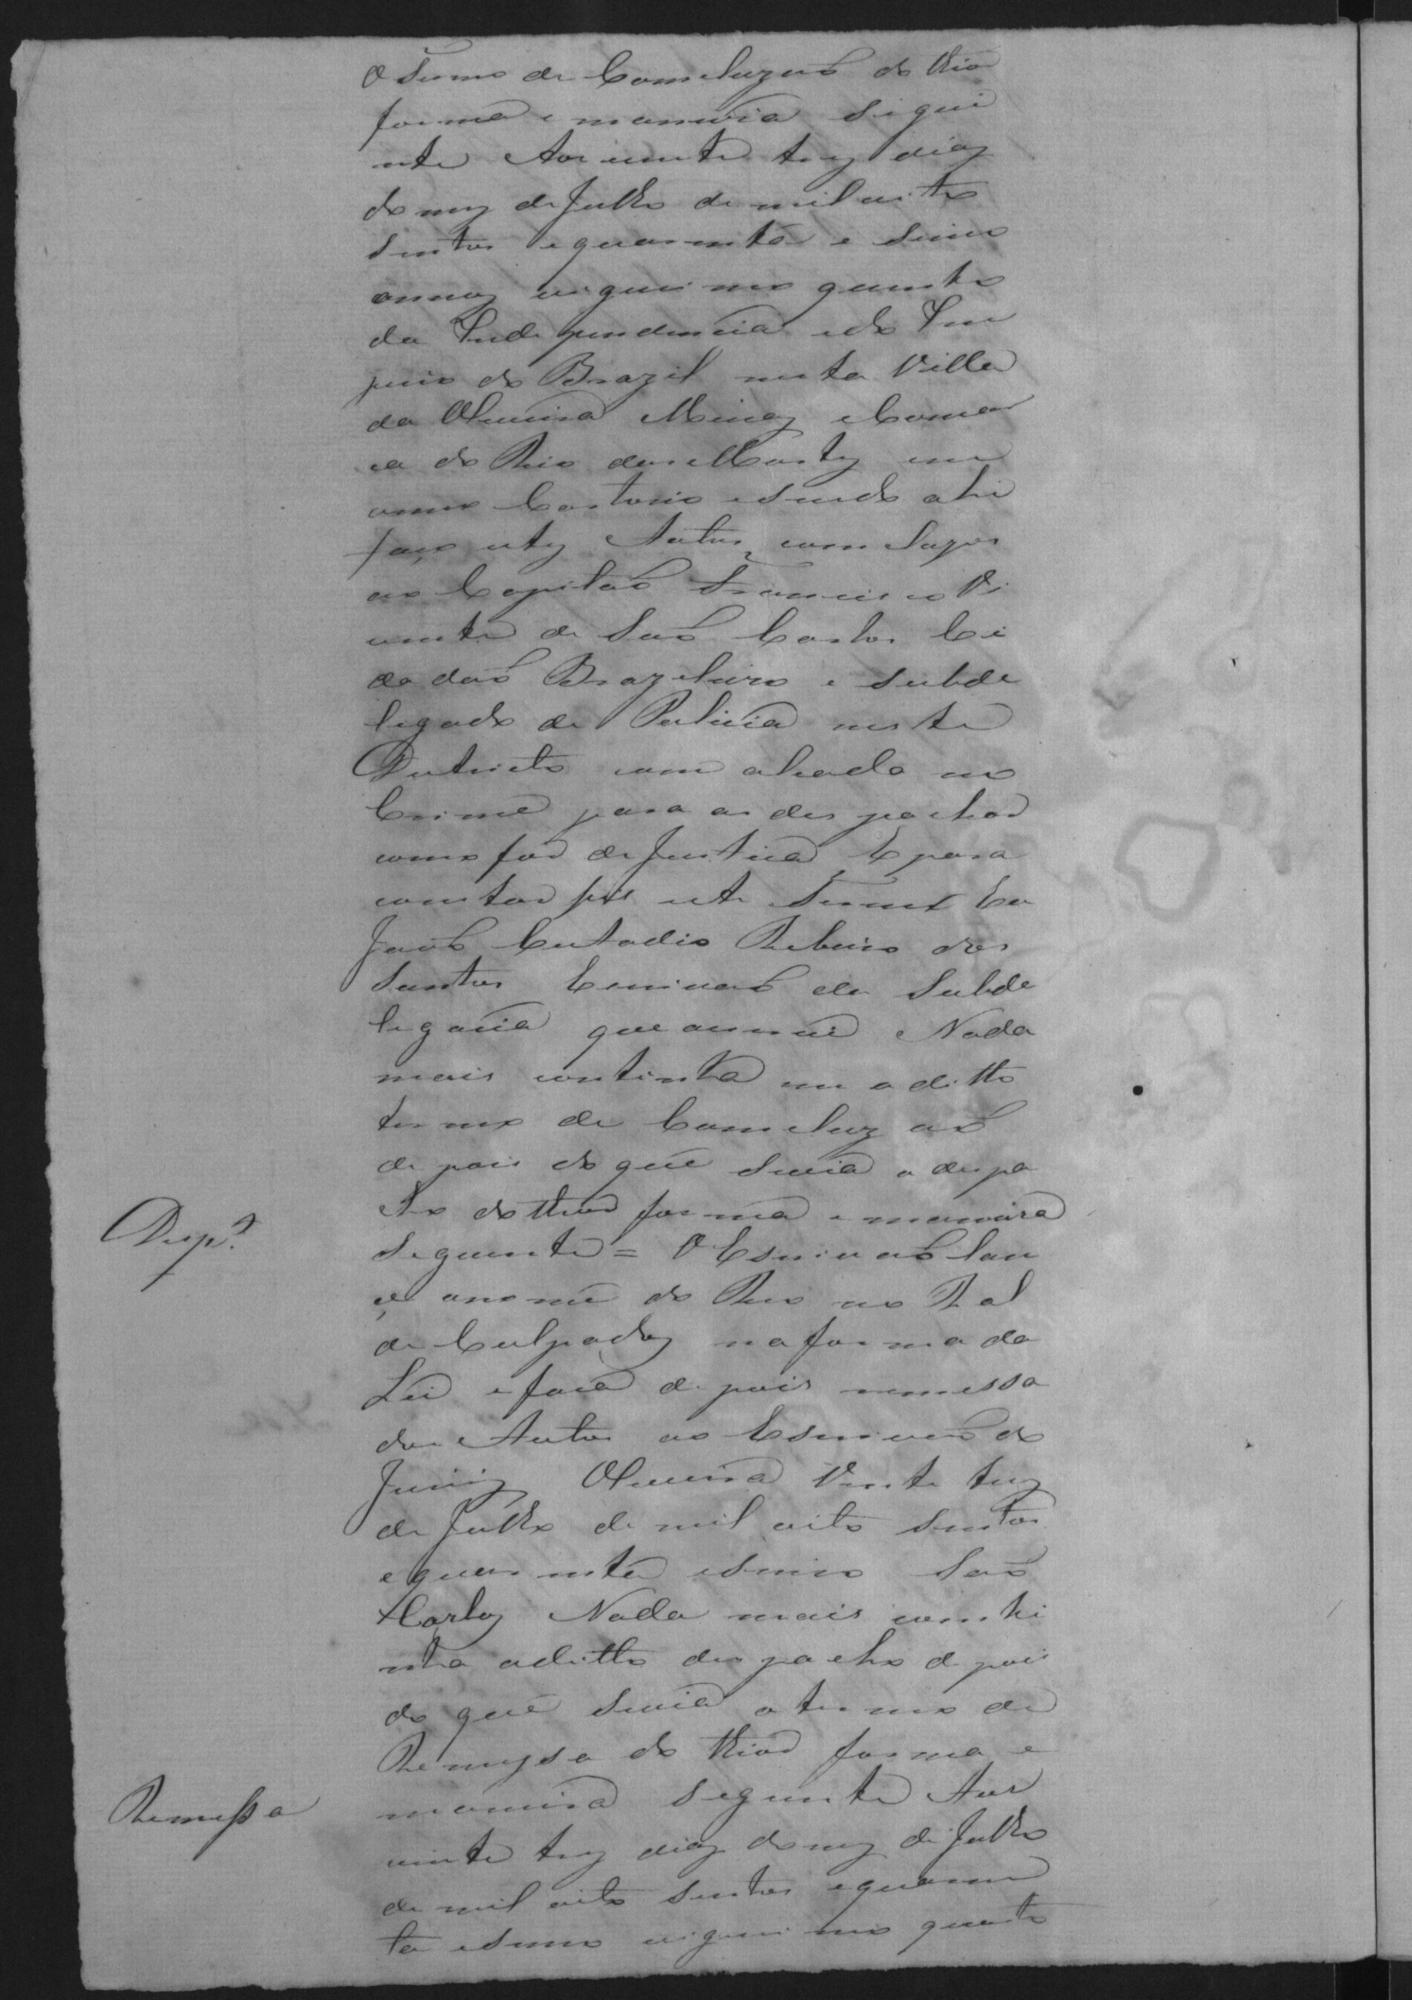 o Termo de Comcluzaõ do thior
forma e maneira segui
nte Aos vinte trez diaz
do mez de Julho de mil oito
sentos e quarenta e sinco
annoz vigecimo quarto
da Independencia e do Im
perio do Brazil nesta Villa
da Oliveira Minaz e Comar
ca do Rio das Mortez em
o meu Cartorio e sendo ahi
faço estez Autos comcluzos
ao Capitaõ Francisco Vi
cente de Saõ Carlos Ci
dadaõ Brazeleiro e subde
legado de Policia neste
Destricto com alsada no
Crime para os despachar
como for de Justica E para
constar fis este Termo Eu
Joaõ Custodio Ribeiro dos
Santos Escrivaõ da Subde
legacia que escrevi Nada
mais continha em o ditto
termo de Comcluzaõ
depois do que sevia o despa
cho do thior forma e maneira
seguinte = O Escrivaõ lan
çe o nome do Reo no Rol
de Culpadoz na forma da
Lei e faça depois remessa
dos Autos ao Escrivaõ do
Juriz Oliveira Vinte trez
de Julho de mil oito sentos
e quarenta e sinco Saõ
Carloz Nada mais conthi
nha o ditto despacho depois
do que sevia o termo de
Remessa do thior forma e
maneira seguinte Aos
vinte trez diaz do mez de Julho
de mil oito sentos e quaren
ta e sinco vigecimo quarto
Desp.º
Remessa